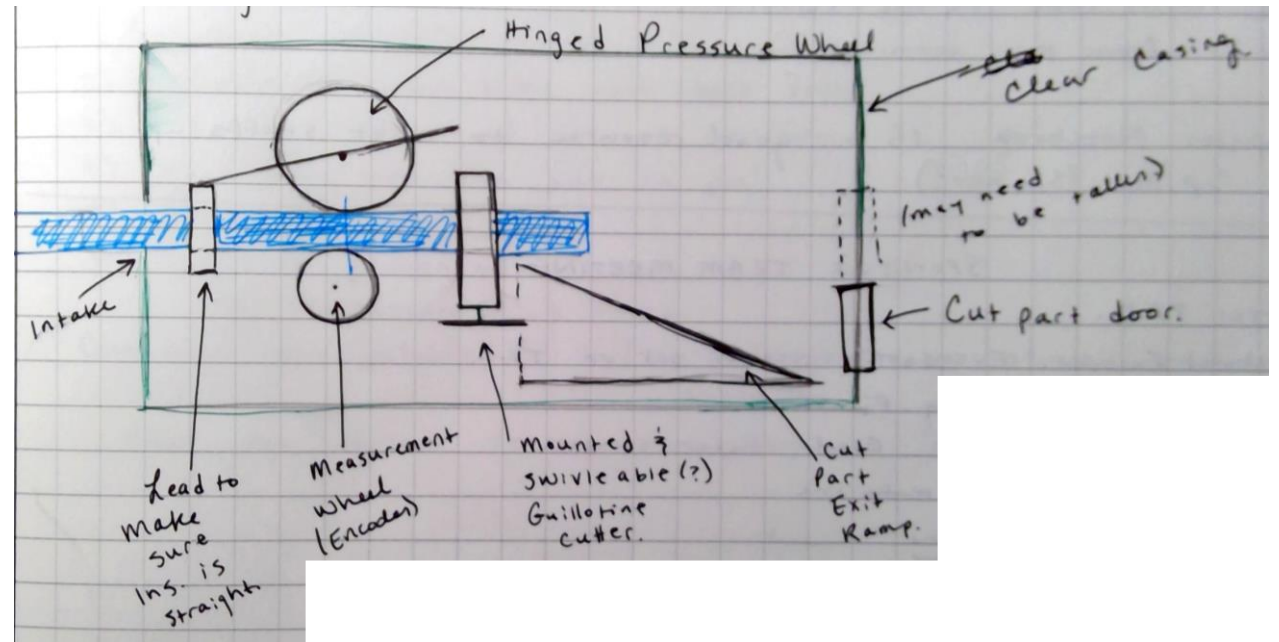 Hinged Pressure Wheel
Clear Casing
(may need
to be taller)
Cut part door.
Intake
Lead to
make
sure
Ins. is
straight.
Measurement
Wheel
(Encoder)
Mounted &
Swivleable(?)
Guillotine
Cutter.
Cut
Part
Exit
Ramp.